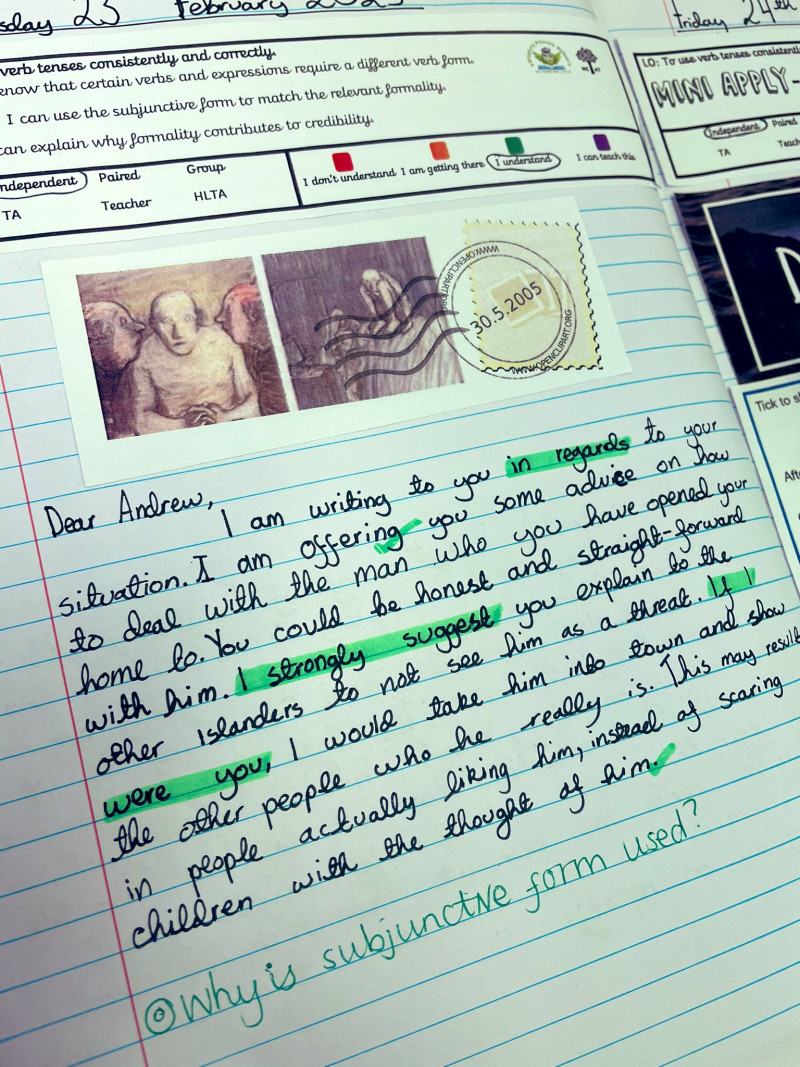 sday 23 February 2023
verb tenses consistently and correctly.
know that certain verbs and expressions require a different verb form.
I can use the subjunctive form to match the relevant formality.
can explain why formality contributes to credibility.
Independent Paired Group
TA Teacher HLTA
I don't understand I am getting there I understand I can teach this
WWW.OPENCLIPART.ORG
30.5.2005
WWW.OPENCLIPART.ORG
Dear Andrew,
I am writing to you in regards to your
situation. I am offering you some advice on how
to deal with the man who you have opened your
home to. You could be honest and straight-forward
with him. I strongly suggest you explain to the
other islanders to not see him as a threat. If I
were you, I would take him into town and show
the other people who he really is. This may result
in people actually liking him, instead of scaring
children with the thought of him.
Why is subjunctive form used?
Friday 24th
LO: To use verb tenses consistentl
MINI APPLY-
Independent Paired
TA Teach
D
Tick to s
Aft